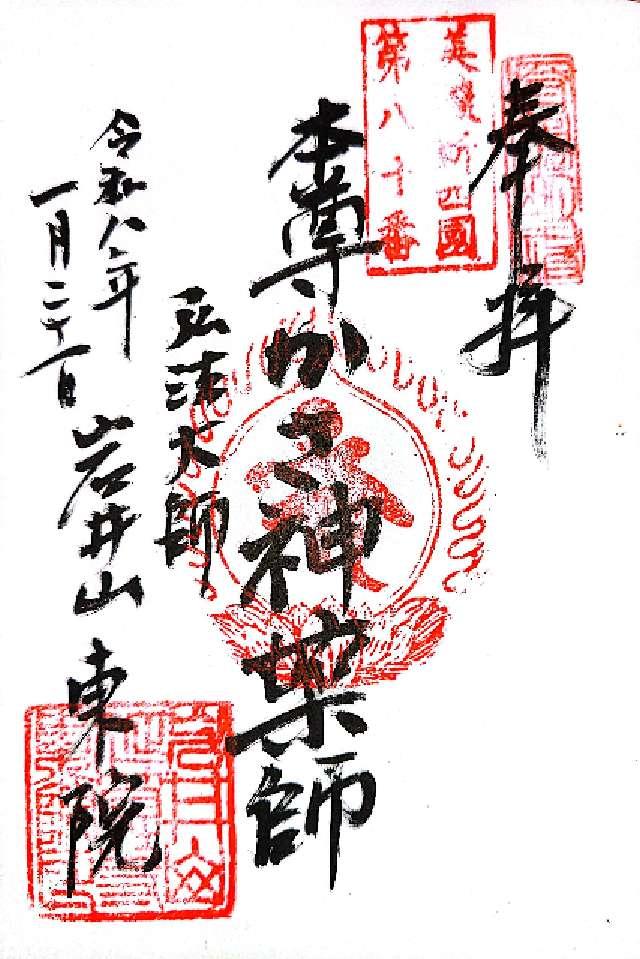 奉拝
美濃新四國
第八十番
本尊かさ神薬師
弘法大師
令和八年
一月二十一日
岩井山 東院